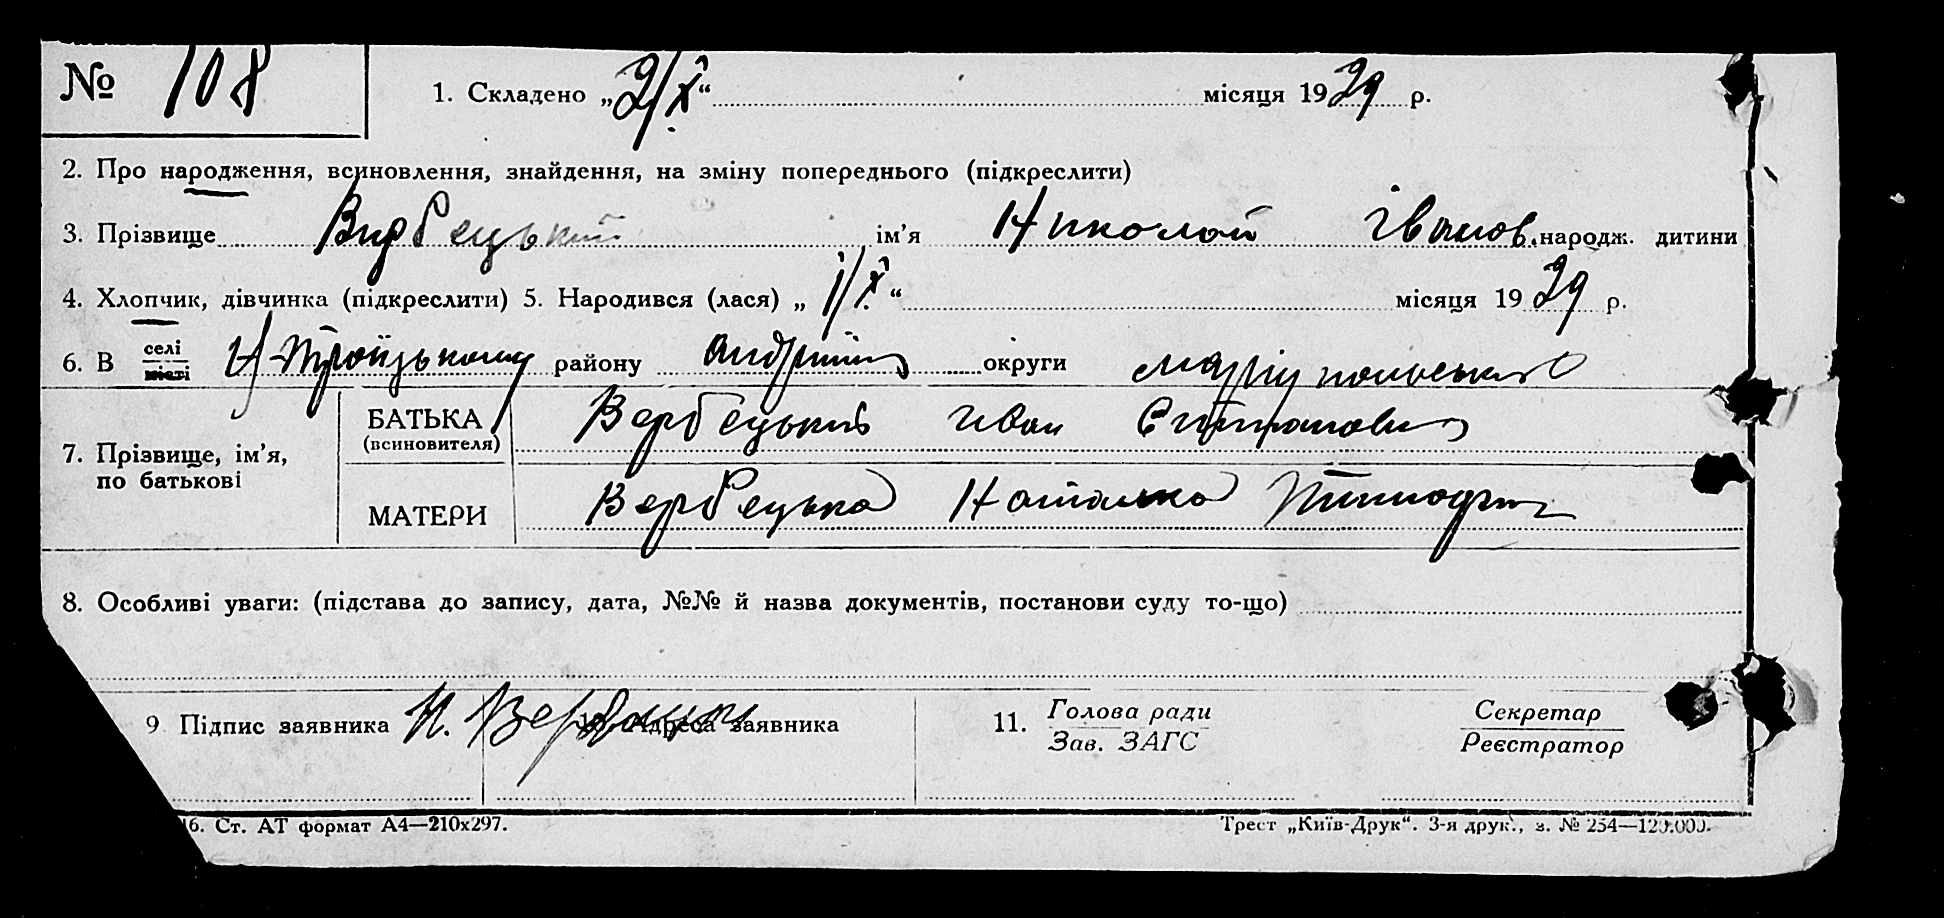 № 108 1. Складено „2/X“ місяця 1929 р.
2. Про народження, всиновлення, знайдення, на зміну попереднього (підкреслити)
3. Прізвище Вирбецький ім’я Николай Іванов. народж. дитини
4. Хлопчик, дівчинка (підкреслити) 5. Народився (лася) „1/X“ місяця 1929 р.
6. В селі місті Н-Троїцькому району округи Маріупольської
7. Прізвище, ім’я, по батькові
БАТЬКА (всиновителя) Вербецький Иван
МАТЕРИ Вербецька Наталка
8. Особливі уваги: (підстава до запису, дата, №№ й назва документів, постанови суду то-що)
9 Підпис заявника Н. 10. Адреса заявника 11. Голова ради Секретар
Зав. ЗАГС Реєстратор
16. Ст. АТ формат А4—210х297. Трест „Київ-Друк“. 3-я друк., з. № 254—120.000.